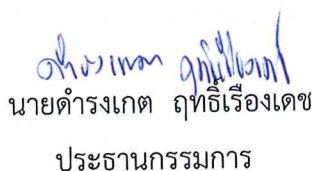 นายดำรงเกต ฤทธิ์เรืองเดช
ประธานกรรมการ